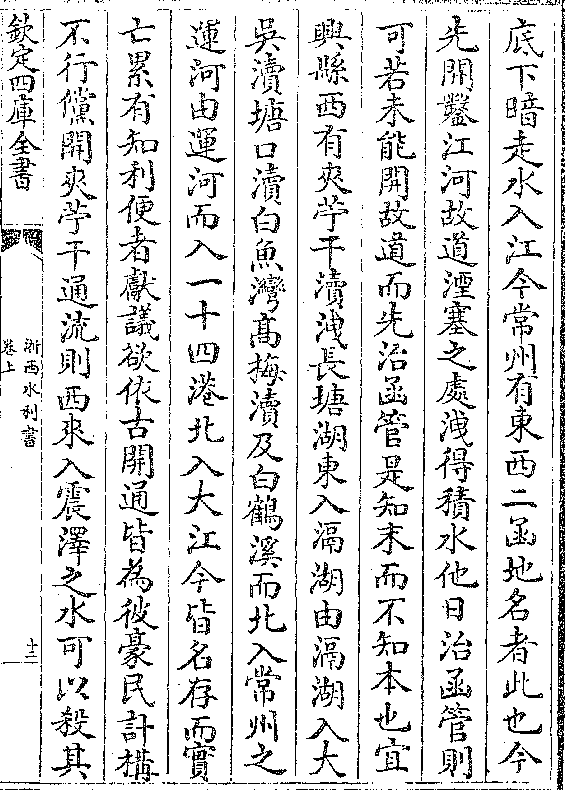 底下暗走水入江今常州有東西二函地名者此也今
先開鑿江河故道湮塞之處洩得積水他日治函管則
可若未能開故道而先治函管是知末而不知本也宜
興縣西有夾苧干瀆洩長塘湖東入滆湖由滆湖入大
吳瀆塘口瀆白魚灣髙梅瀆及白鶴溪而北入常州之
運河由運河而入一十四港北入大江今皆名存而實
亡累有知利便者獻議欲依古開通皆為彼豪民計構
不行儻開夾苧干通流則西來入震澤之水可以殺其
欽定四庫全書
浙西水利書
卷上
十三